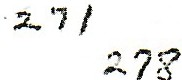 271
278